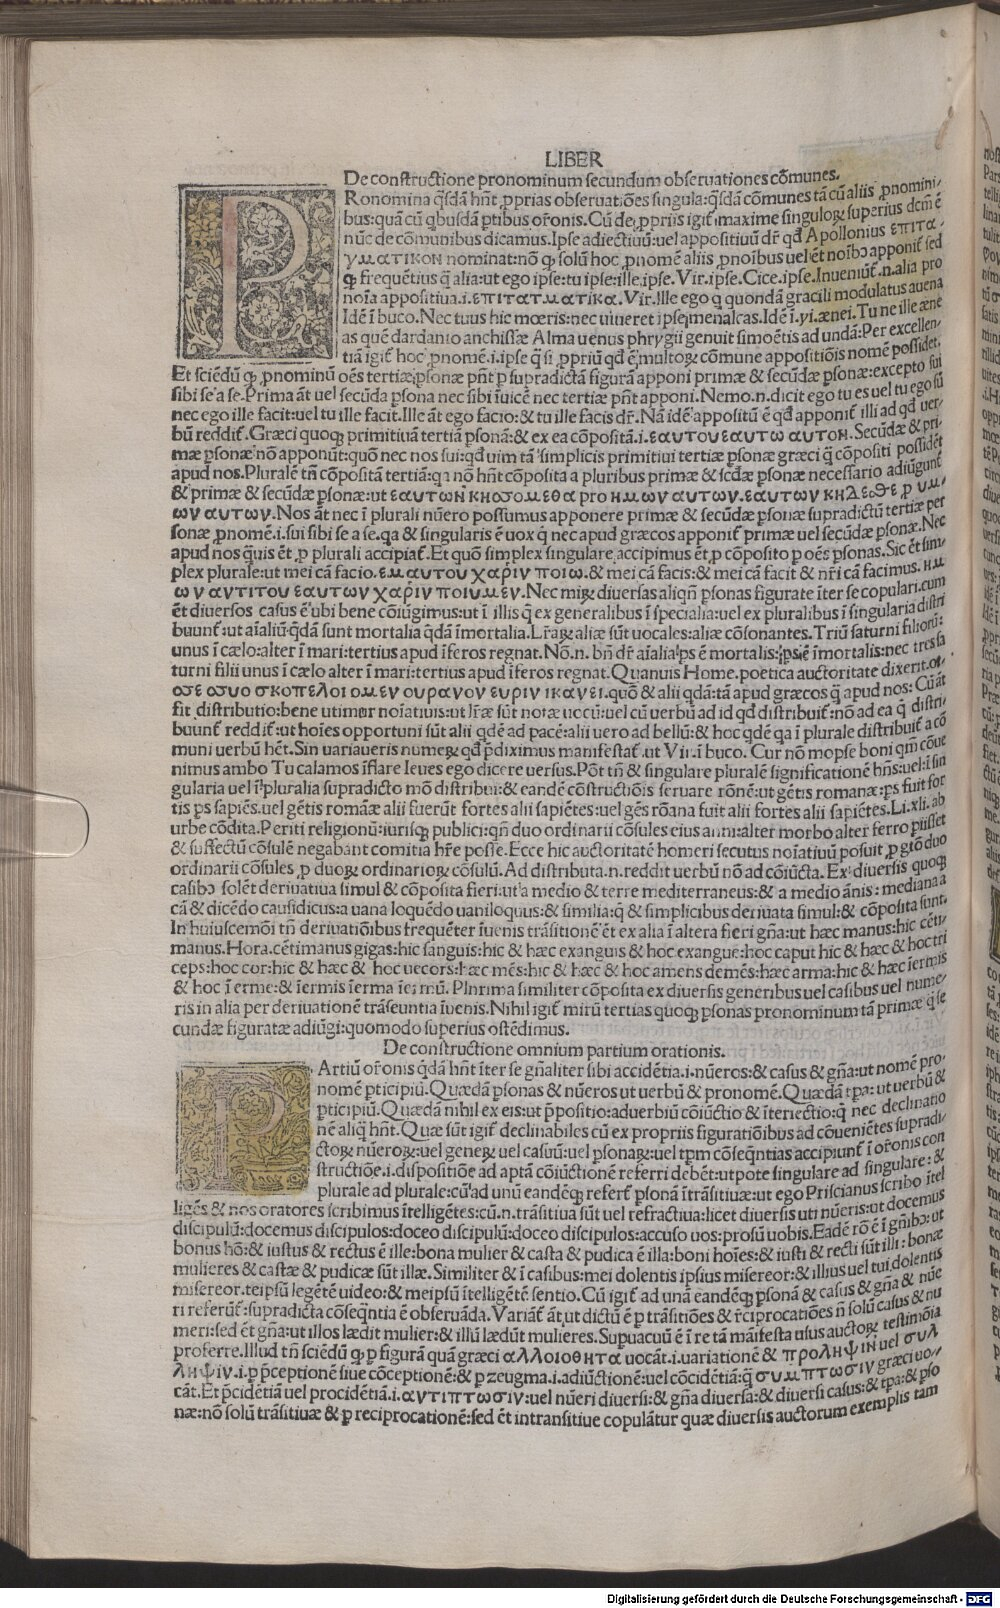 LIBER
De constructione pronominum secundum obseruationes cōmunes.
Ronomina q̄sdā hn̄t ꝓprias obseruatiōes singula: q̄sdā cōmunes tā cū aliis ꝓnomini-
bus: quā cū qbusdā ptibus or̄onis. Cū de ꝓpriis igit̄ maxime singuloꝝ superius dcm̄ ē
nūc de cōmunibus dicamus. Ipse adiectiuū: uel appositiuū dr̄ qđ Apollonius επιτα-
γματικον nominat: nō ꝙ solū hoc ꝓnomē aliis ꝓnoibus uel ēt noībꝰ apponit̄ sed
ꝙ frequētius q̄ alia: ut ego ipse: tu ipse: ille ipse. Vir. ipse. Cice. ipse. Inueniūt̄ .n. alia pro
noīa appositiua .i. επιτατματικα. Vir. Ille ego q quondā gracili modulatus auena
Idē ī buco. Nec tuus hic mœris: nec uiueret ipse menalcas. Idē ī .yi. ænei. Tu ne ille æne
as quē dardanio anchissæ Alma uenus phrygii genuit simoētis ad undā: Per excellen-
tiā igit̄ hoc ꝓnomē .i. ipse q̄ si ꝓpriū qđ ē multoꝝ cōmune appositiōis nomē possidet.
Et sciēdū ꝙ ꝓnominū oēs tertiæ psonæ pn̄t p supradictā figurā apponi primæ & secūdæ psonæ: excepto sui
sibi se a se. Prima āt uel secūda psona nec sibi īuicē nec tertiæ pn̄t apponi. Nemo .n. dicit ego tu es uel tu ego sū
nec ego ille facit: uel tu ille facit. Ille āt ego facio: & tu ille facis dr̄. Nā idē appositū ē qđ apponit̄ illi ad qđ uer-
bū reddit̄. Græci quoqꝫ primitiuā tertiā psonā: & ex ea cōpositā .i. εαυτου εαυτω αυτον. Secūdæ & pri-
mæ psonæ nō apponūt: quō nec nos sui: qđ uim tā simplicis primitiui tertiæ psonæ græci q̄ cōpositi possidēt
apud nos. Pluralē tn̄ cōpositā tertiā: qa nō hn̄t cōposita a pluribus primæ & scđæ psonæ necessario adiūgunt
& primæ & secūdæ psonæ: ut εαυτων κησομεθα pro ημων αυτων. εαυτων κηδεσθε ꝓ υμ-
ων αυτων. Nos āt nec ī plurali nūero possumus apponere primæ & secūdæ psonæ supradictū tertiæ per
sonæ ꝓnomē .i. sui sibi se a se. qa & singularis ē uox q nec apud græcos apponit̄ primæ uel secūdæ psonæ. Nec
apud nos quis ēt ꝓ plurali accipiat̄. Et quō simplex singulare accipimus ēt ꝓ cōposito p oēs psonas. Sic ēt sim-
plex plurale: ut mei cā facio. εμαυτου χαριν ποιω. & mei cā facis: & mei cā facit & nr̄i cā facimus. ημ
ων αντιτου εαυτων χαριν ποιυμεν. Nec miꝝ diuersas aliqn̄ psonas figurate īter se copulari. cum
ēt diuersos casus ē ubi bene cōiūgimus: ut ī illis q ex generalibus ī specialia: uel ex pluralibus ī singularia distri
buunt̄: ut aīaliū qdā sunt mortalia qdā īmortalia. Lr̄aꝝ aliæ sūt uocales: aliæ cōsonantes. Triū saturni filiorū:
unus ī cælo: alter ī mari: tertius apud īferos regnat. Nō .n. bn̄ dr̄ aīalia ps ē mortalis: ps ē īmortalis: nec tres sa
turni filii unus ī cælo alter ī mari: tertius apud īferos regnat. Quanuis Home. poetica auctoritate dixerit. οι
οσε οσυο σκοπελοι ομεν ουρανον ευριν ικανει. quō & alii qdā: tā apud græcos q̄ apud nos: Cū āt
fit distributio: bene utimur noīatiuis: ut lr̄æ sūt notæ uocū: uel cū uerbū ad id qđ distribuit̄: nō ad ea q̄ distri-
buunt̄ reddit̄: ut hoīes opportuni sūt alii qdē ad pacē: alii uero ad bellū: & hoc qdē qa ī plurale distribuit̄ a cō
muni uerbū hēt. Sin uariaueris numeꝝ qđ p̄diximus manifestat̄. ut Vir. ī buco. Cur nō mopse boni qm̄ cōue
nimus ambo Tu calamos īflare leues ego dicere uersus. Pōt tn̄ & singulare pluralē significationē hn̄s: uel ī sin
gularia uel ī pluralia supradicto mō distribui: & eandē cōstructiōis seruare rōnē: ut gētis romanæ: ps fuit for
tis ps sapiēs. uel gētis romāæ alii fuerūt fortes alii sapiētes: uel gēs rōana fuit alii fortes alii sapiētes. Li. xli. ab
urbe cōdita. Periti religionū: iurisqꝫ publici: qn̄ duo ordinarii cōsules eius anni: alter morbo alter ferro piisset
& suffectū cōsulē negabant comitia hr̄e posse. Ecce hic auctoritatē homeri secutus noīatiuū posuit ꝓ gtō duo
ordinarii cōsules ꝓ duoꝝ ordinarioꝝ cōsulū. Ad distributa .n. reddit uerbū nō ad cōiūcta. Ex diuersis quoqꝫ
casibꝰ solēt deriuatiua simul & cōposita fieri: ut a medio & terre mediterraneus: & a medio ānis: mediana a
cā & dicēdo causidicus: a uana loquēdo uaniloquus: & similia: q̄ & simplicibus deriuata simul: & cōposita sunt.
In huiuscemōi tn̄ deriuatiōibus frequēter īuenis trāsitionē ēt ex alia ī altera fieri gn̄a: ut hæc manus: hic cēti-
manus. Hora. cētimanus gigas: hic sanguis: hic & hæc exanguis & hoc exangue: hoc caput hic & hæc & hoc tri
ceps: hoc cor: hic & hæc & hoc uecors: hæc mēs: hic & hæc & hoc amens demēs: hæc arma: hic & hæc īermis
& hoc īerme: & īermis īerma īermū. Plurima similiter cōposita ex diuersis generibus uel casibus uel nume-
ris in alia per deriuationē trāseuntia īuenis. Nihil igit̄ mirū tertias quoqꝫ psonas pronominum tā primæ q̄ se
cundæ figuratæ adiūgi: quomodo superius ostēdimus.
De constructione omnium partium orationis.
Artiū or̄onis qdā hn̄t īter se gn̄aliter sibi accidētia .i. nūeros: & casus & gn̄a: ut nomē pro-
nomē pticipiū. Quædā psonas & nūeros ut uerbū & pronomē. Quædā tpa: ut uerbū &
pticipiū. Quædā nihil ex eis: ut p̄positio: aduerbiū cōiūctio & īteriectio: q̄ nec declinatio
nē aliq̄ hn̄t. Quæ sūt igit̄ declinabiles cū ex propriis figuratiōibus ad cōueniētes supradi-
ctoꝝ nūeroꝝ: uel geneꝝ uel casuū: uel psonaꝝ: uel tpm cōseqntias accipiunt̄ ī or̄onis con
structiōe .i. dispositiōe ad aptā cōiūctionē referri debēt: utpote singulare ad singulare: &
plurale ad plurale: cū ad unū eandēqꝫ refert̄ psonā ītrāsitiuæ: ut ego Priscianus scribo ītel
ligēs & nos oratores scribimus ītelligētes: cū .n. trāsitiua sūt uel refractiua: licet diuersis uti nūeris: ut docemus
discipulū: docemus discipulos: doceo discipulū: doceo discipulos: accuso uos: prosū uobis. Eadē rō ē ī gn̄ibꝰ: ut
bonus hō: & iustus & rectus ē ille: bona mulier & casta & pudica ē illa: boni hoīes: & iusti & recti sūt illi: bonæ
mulieres & castæ & pudicæ sūt illæ. Similiter & ī casibus: mei dolentis ipsius misereor: & illius uel tui dolentis
misereor. teipsū legētē uideo: & meipsū ītelligētē sentio. Cū igit̄ ad unā eandēqꝫ psonā & casus & gn̄a & nūe
ri referūt̄: supradicta cōseqntia ē obseruāda. Variāt̄ āt ut dictū ē p trāsitiōes & r̄ciprocatiōes n̄ solū casus & nu
meri: sed ēt gn̄a: ut illos lædit mulier: & illū lædūt mulieres. Supuacuū ē ī re tā māifesta usus auctoꝝ testimōia
proferre. Illud tn̄ sciēdū ꝙ p figurā quā græci αλλοιοθητα uocāt .i. uariationē & προληψιν uel συλ
ληψιν .i. p p̄ceptionē siue cōceptionē: & p zeugma .i. adiūctionē: uel cōcidētiā: q̄ συμπτωσιν græci uo-
cāt. Et p̄cidētiā uel procidētiā .i. αντιπτωσιν: uel nūeri diuersi: & gn̄a diuersa: & diuersi casus: & tpa: & pso
næ: nō solū trāsitiuæ & p reciprocationē: sed ēt intransitiue copulātur quæ diuersis auctorum exemplis tam
Digitalisierung gefördert durch die Deutsche Forschungsgemeinschaft - DFG